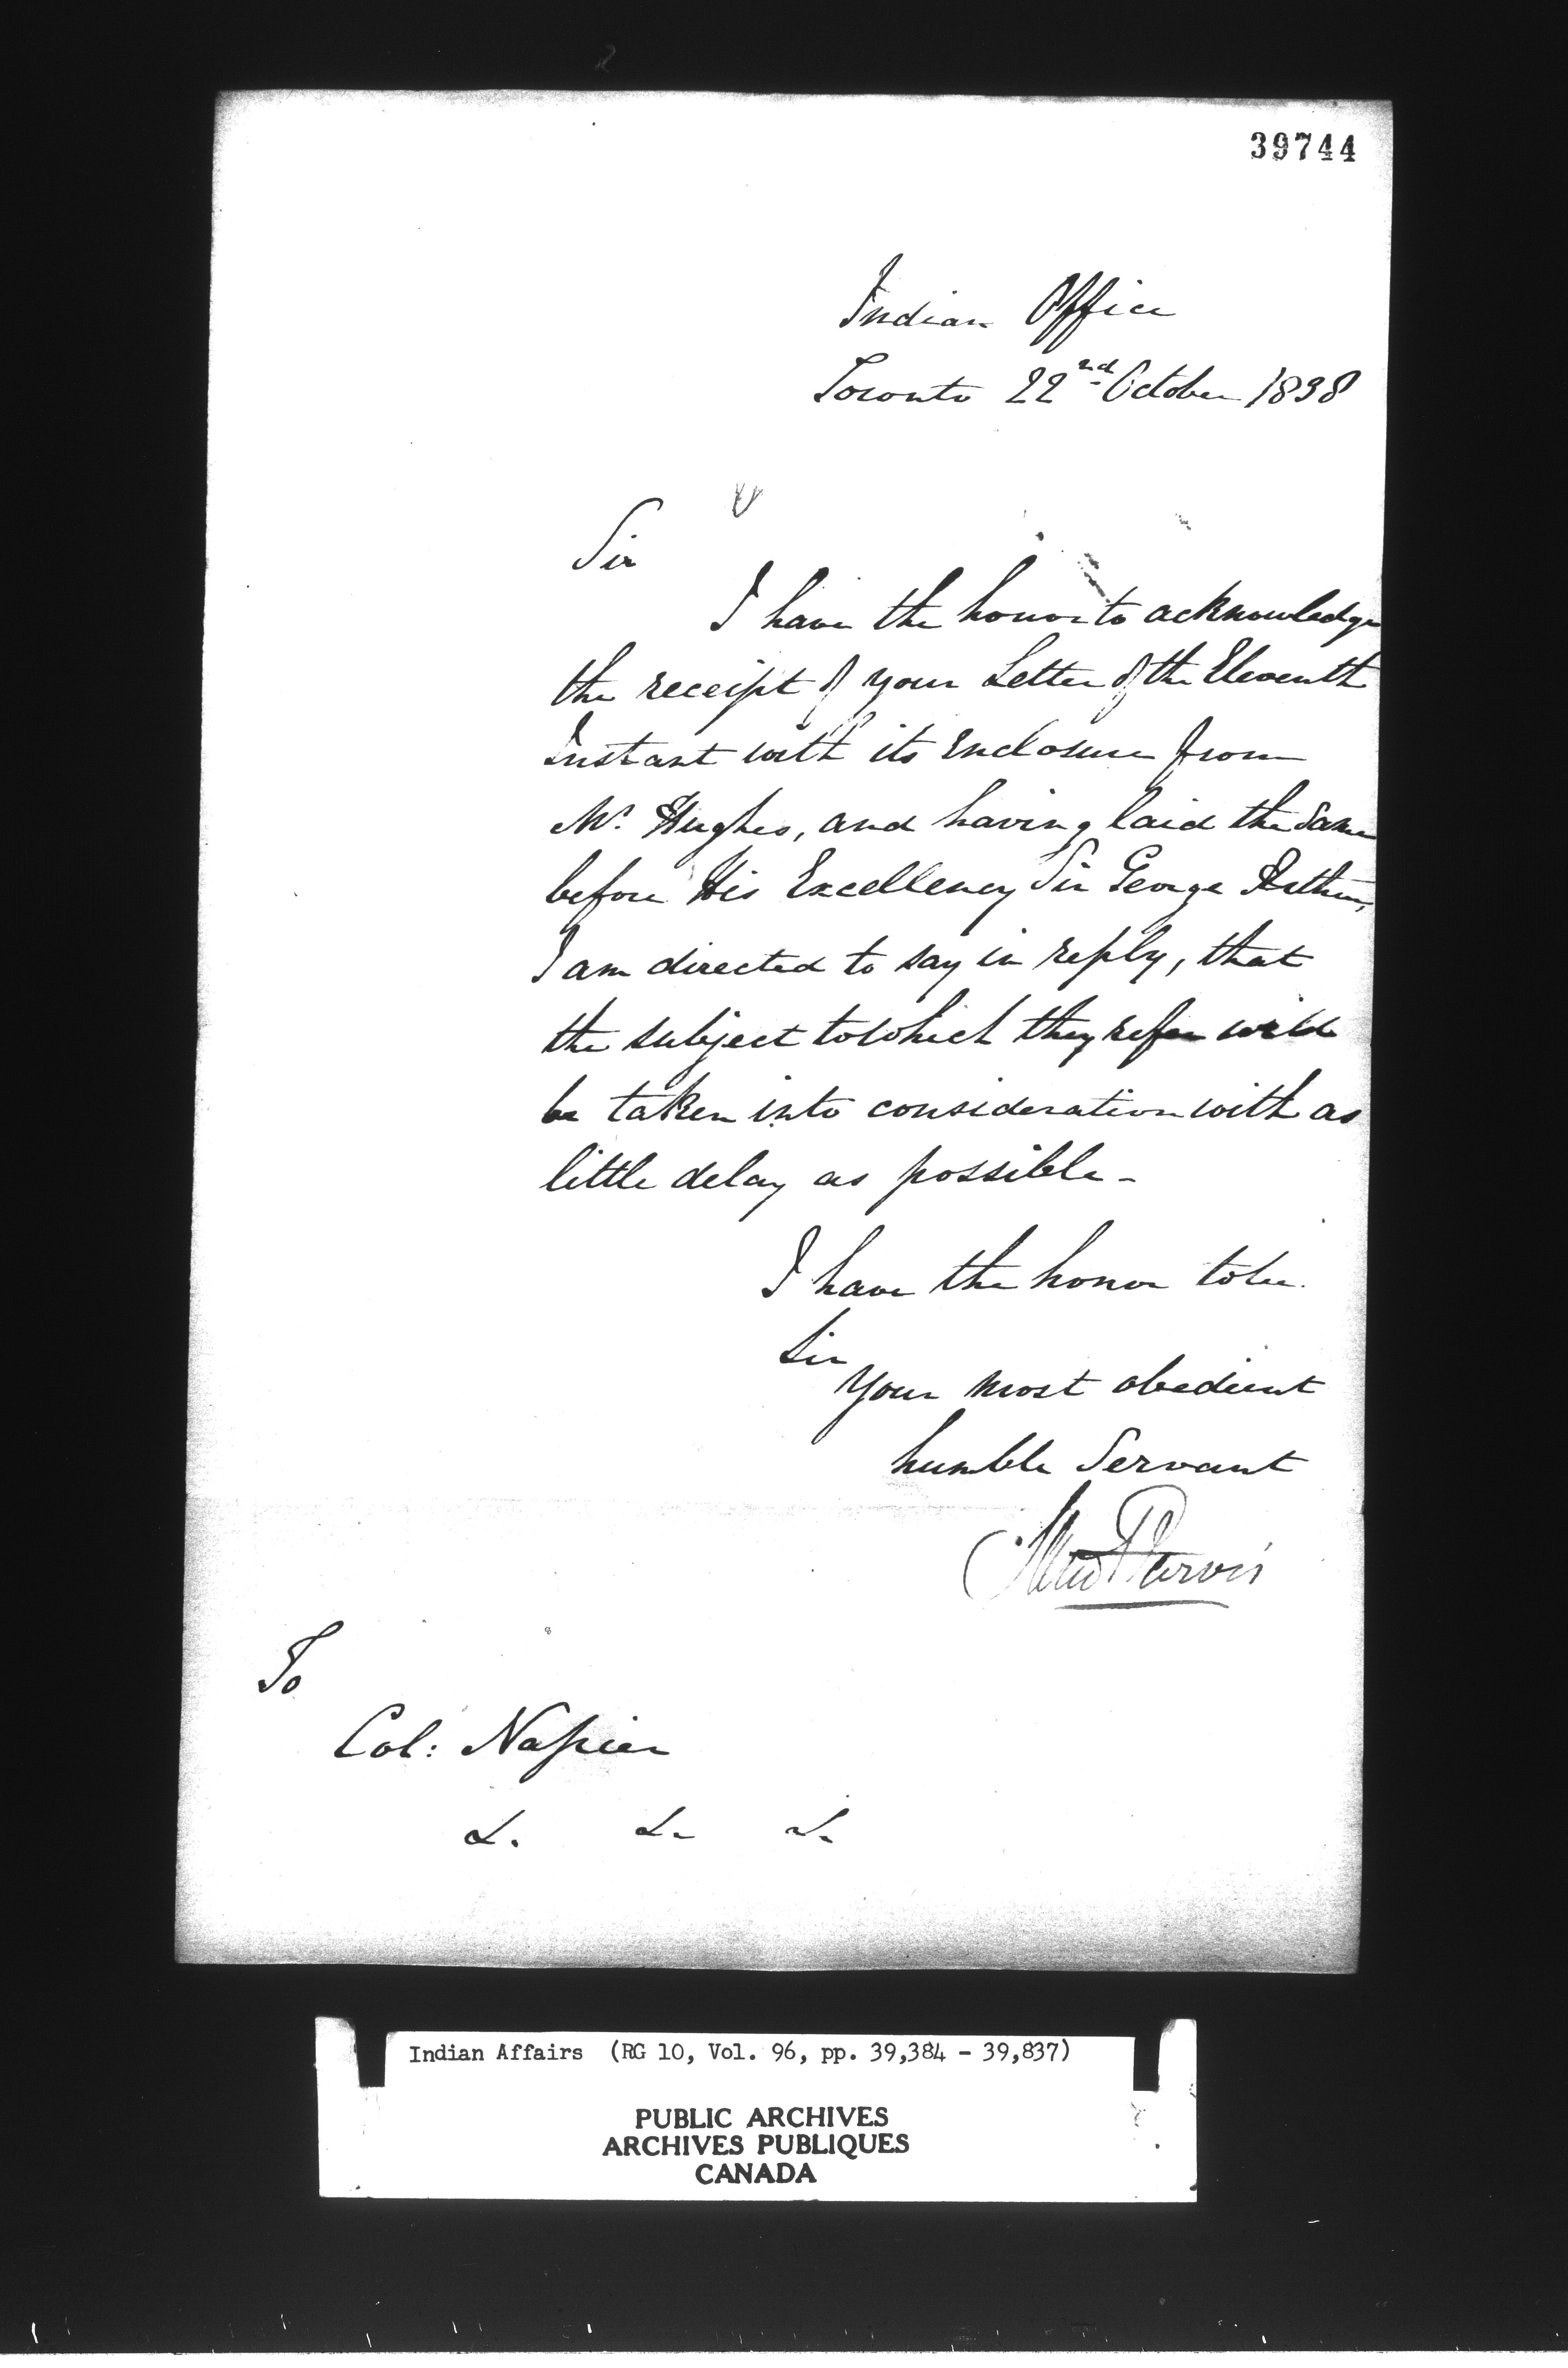 39744
Indian Office
Toronto 22nd October 1838
Sir
I have the honor to acknowledge
the receipt of your Letter of the Eleventh
Instant with its enclosure from
Mr. Hughes, and having laid the same
before His Excellency Sir George Arthur,
I am directed to say in reply, that
the subject to which they refer will
be taken into consideration with as
little delay as possible -
I have the honor to be.
Sir
Your most obedient
humble Servant
Jarvis
To
Col: Napier
&. &. &.
Indian Affairs (RG 10, Vol. 96, pp. 39,384 - 39,837)
PUBLIC ARCHIVES
ARCHIVES PUBLIQUES
CANADA